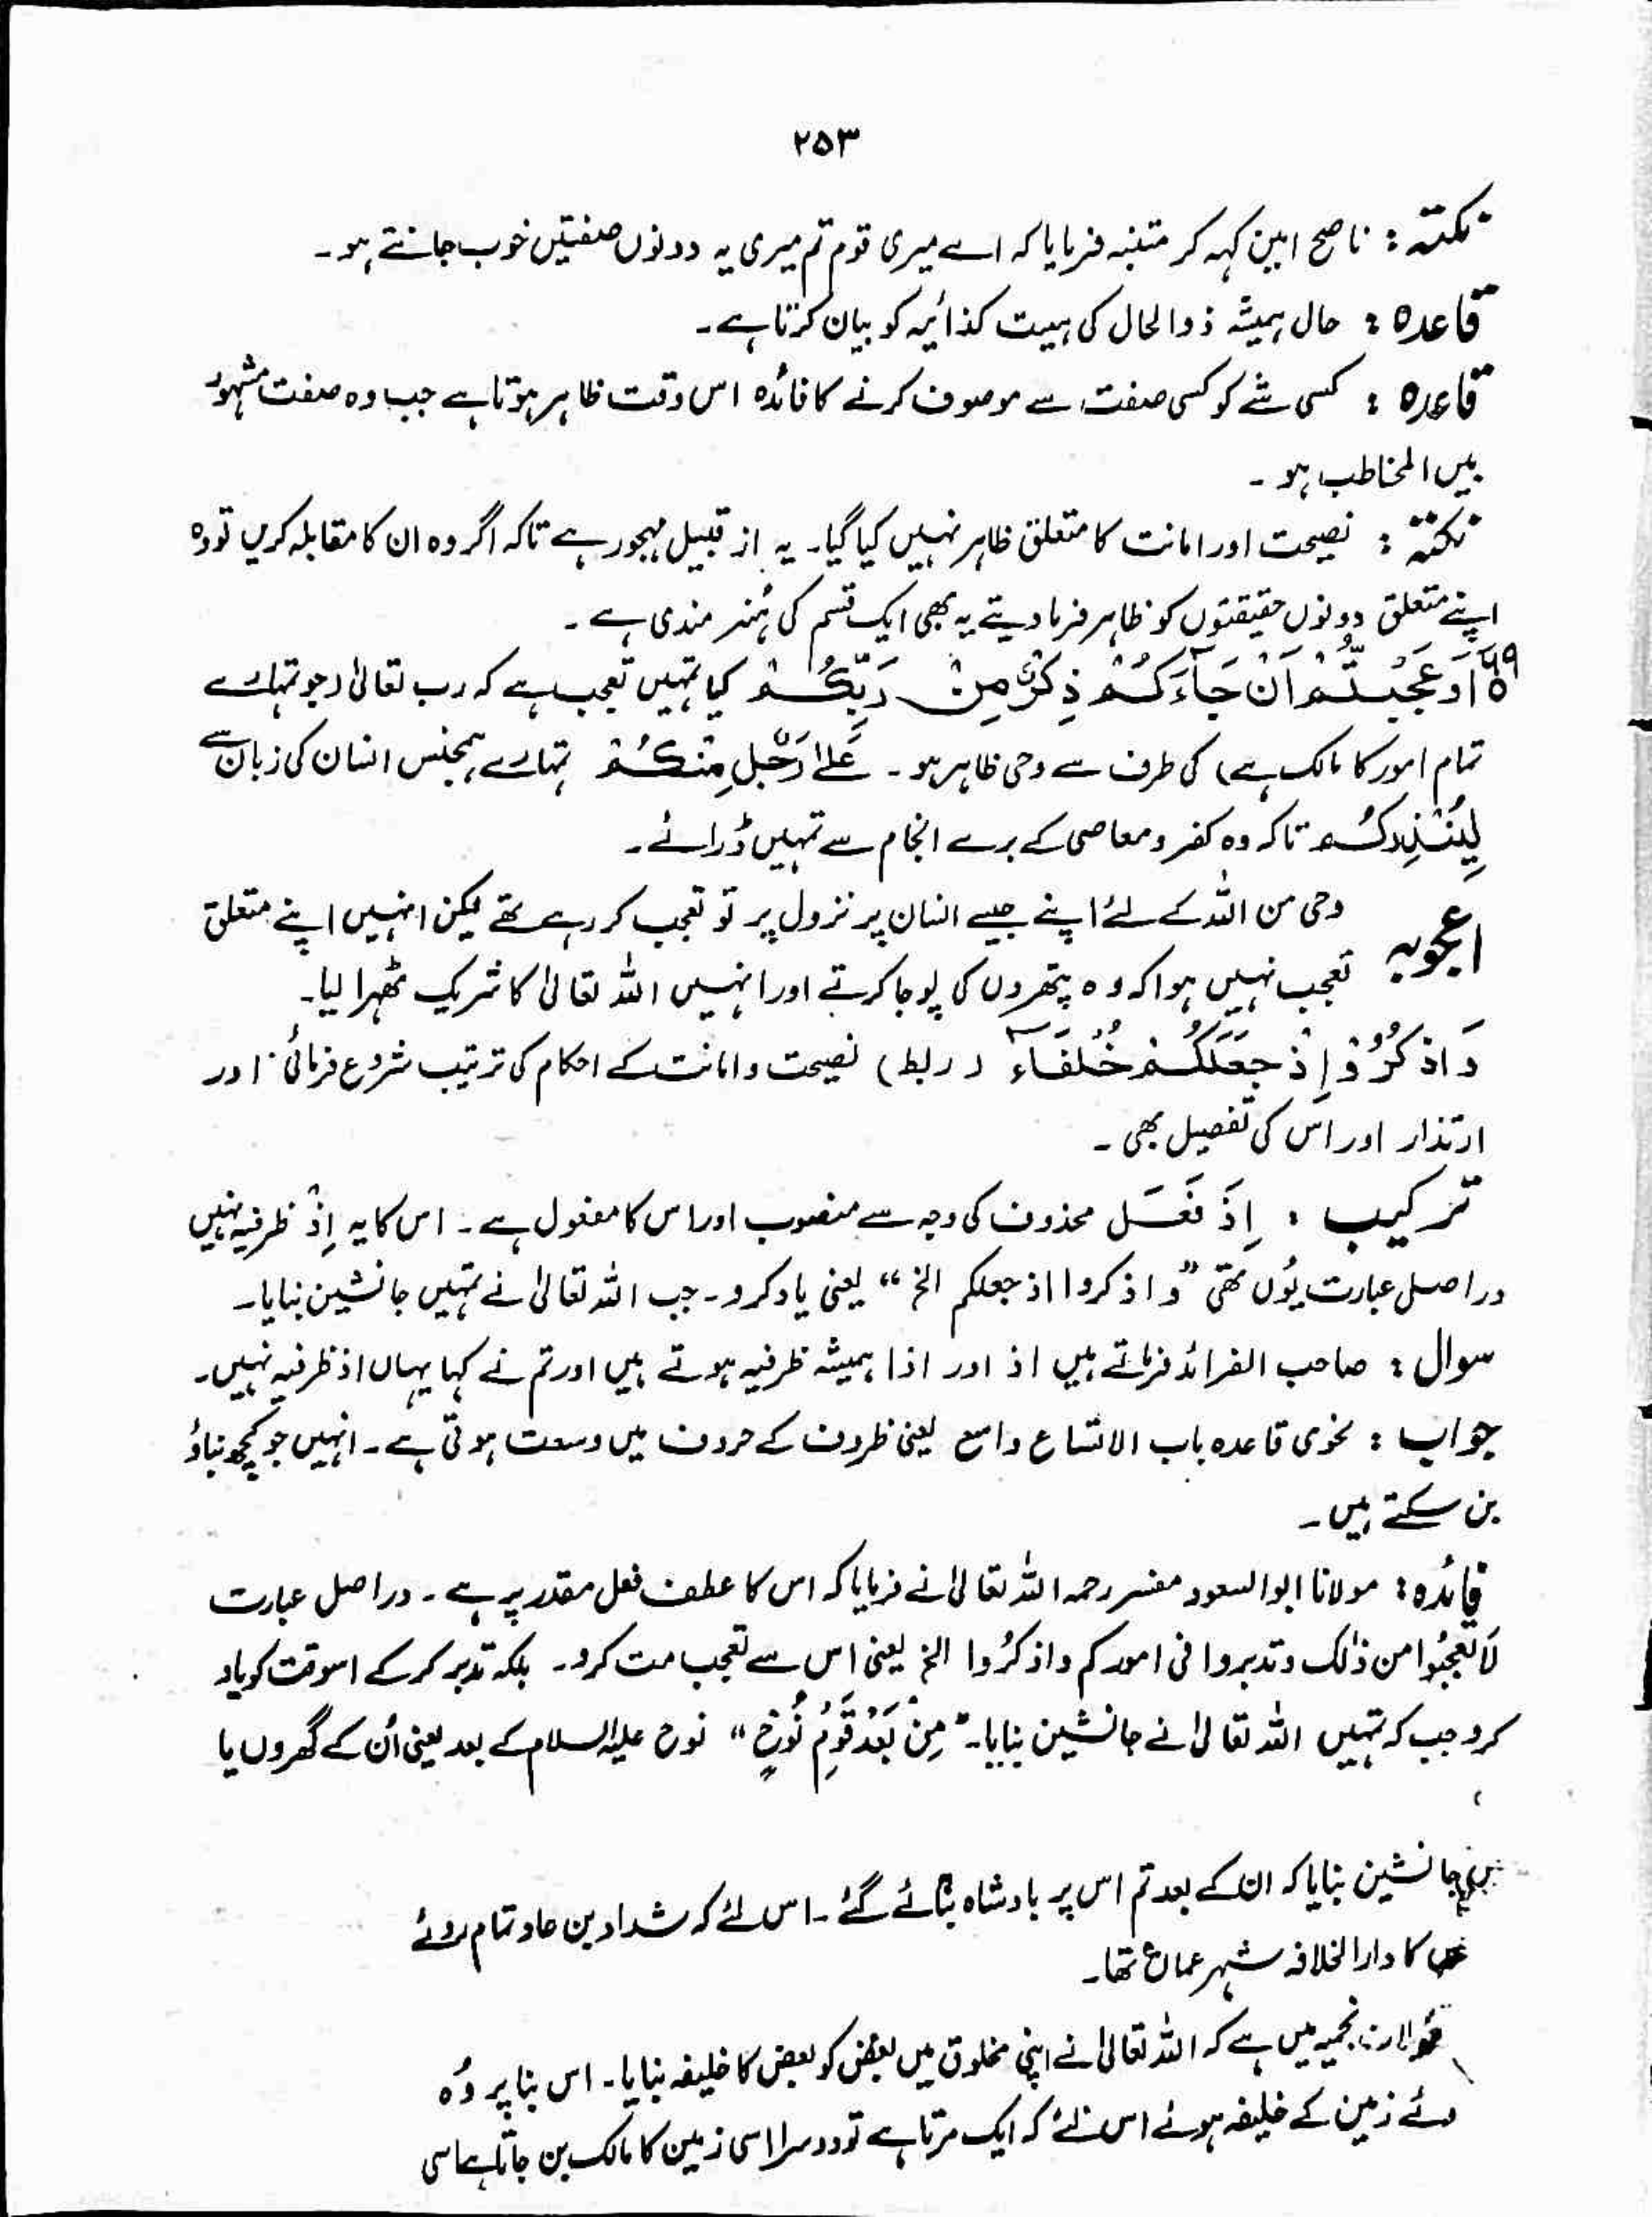 ۲۵۳
نکتہ : ناصح امین کہہ کر متنبہ فرمایا کہ اے میری قوم تم میری یہ دونوں صفتیں خوب جانتے ہو ۔
قاعدہ : حال ہمیشہ ذوالحال کی ہیت کذائیہ کو بیان کرتا ہے ۔
قاعدہ : کسی شے کو کسی صفت سے موصوف کرنے کا فائدہ اس وقت ظاہر ہوتا ہے جب وہ صفت مشہور
بین المخاطب ہو ۔
نکتہ : نصیحت اور امانت کا متعلق ظاہر نہیں کیا گیا ۔ یہ از قبیل مہجور ہے تاکہ اگر وہ ان کا مقابلہ کریں تو وہ
اپنے متعلق دونوں حقیقتوں کو ظاہر فرما دیتے یہ بھی ایک قسم کی ہُنر مندی ہے ۔
۶۹ اَوَعَجِبْتُمْ اَنْ جَآءَكُمْ ذِكْرٌ مِنْ رَبِّكُمْ کیا تمہیں تعجب ہے کہ رب تعالیٰ (جو تمہارے
تمام امور کا مالک ہے) کی طرف سے وحی ظاہر ہو ۔ عَلٰى رَجُلٍ مِنْكُمْ تمہارے ہمجنس انسان کی زبان سے
لِيُنْذِرَكُمْ تاکہ وہ کفر و معاصی کے برے انجام سے تمہیں ڈرائے ۔
اعجوبہ وحی من اللہ کے لئے اپنے جیسے انسان پر نزول پر تو تعجب کر رہے تھے لیکن انہیں اپنے متعلق
تعجب نہیں ہوا کہ وہ پتھروں کی پوجا کرتے اور انہیں اللہ تعالیٰ کا شریک ٹھہرا لیا ۔
وَاذْكُرُوْا اِذْ جَعَلَكُمْ خُلَفَآءَ (ربط) نصیحت و امانت کے احکام کی ترتیب شروع فرمائی اور
ارتذار اور اس کی تفصیل بھی ۔
ترکیب : اِذَ فَعَسَل محذوف کی وجہ سے منصوب اور اس کا مفعول ہے ۔ اس کا یہ اِذْ ظرفیہ نہیں
دراصل عبارت یُوں تھی " واذکروا اذ جعلکم الخ " یعنی یاد کرو ۔ جب اللہ تعالیٰ نے تمہیں جانشین بنایا ۔
سوال : صاحب الفرائد فرماتے ہیں اذ اور اذا ہمیشہ ظرفیہ ہوتے ہیں اور تم نے کہا یہاں اذ ظرفیہ نہیں ۔
جواب : نحوی قاعدہ باب الاتساع واسع یعنی ظروف کے حروف میں وسعت ہوتی ہے ۔ انہیں جو کچھ بناؤ
بن سکتے ہیں ۔
فائدہ : مولانا ابوالسعود مفسر رحمہ اللہ تعالیٰ نے فرمایا کہ اس کا عطف فعل مقدر پر ہے ۔ دراصل عبارت
لَا تعجبُوا من ذٰلک و تدبروا فی امورکم واذکرُوا الخ یعنی اس سے تعجب مت کرو ۔ بلکہ تدبر کرکے اسوقت کو یاد
کرو جب کہ تمہیں اللہ تعالیٰ نے جانشین بنایا ۔ " مِنْ بَعْدِ قَوْمِ نُوْحٍ " نوح علیہ السلام کے بعد یعنی اُن کے گھروں یا
جانشین بنایا کہ ان کے بعد تم اس پر بادشاہ بنائے گئے ۔ اس لئے کہ شداد بن عاد تمام روئے
کا دارالخلافہ شہر عمان تھا ۔
نجمیہ میں ہے کہ اللہ تعالیٰ نے اپنی مخلوق میں بعض کو بعض کا خلیفہ بنایا ۔ اس بنا پر وُہ
زمین کے خلیفہ ہوئے اس لئے کہ ایک مرتا ہے تو دوسرا اسی زمین کا مالک بن جاتا ہے اسی